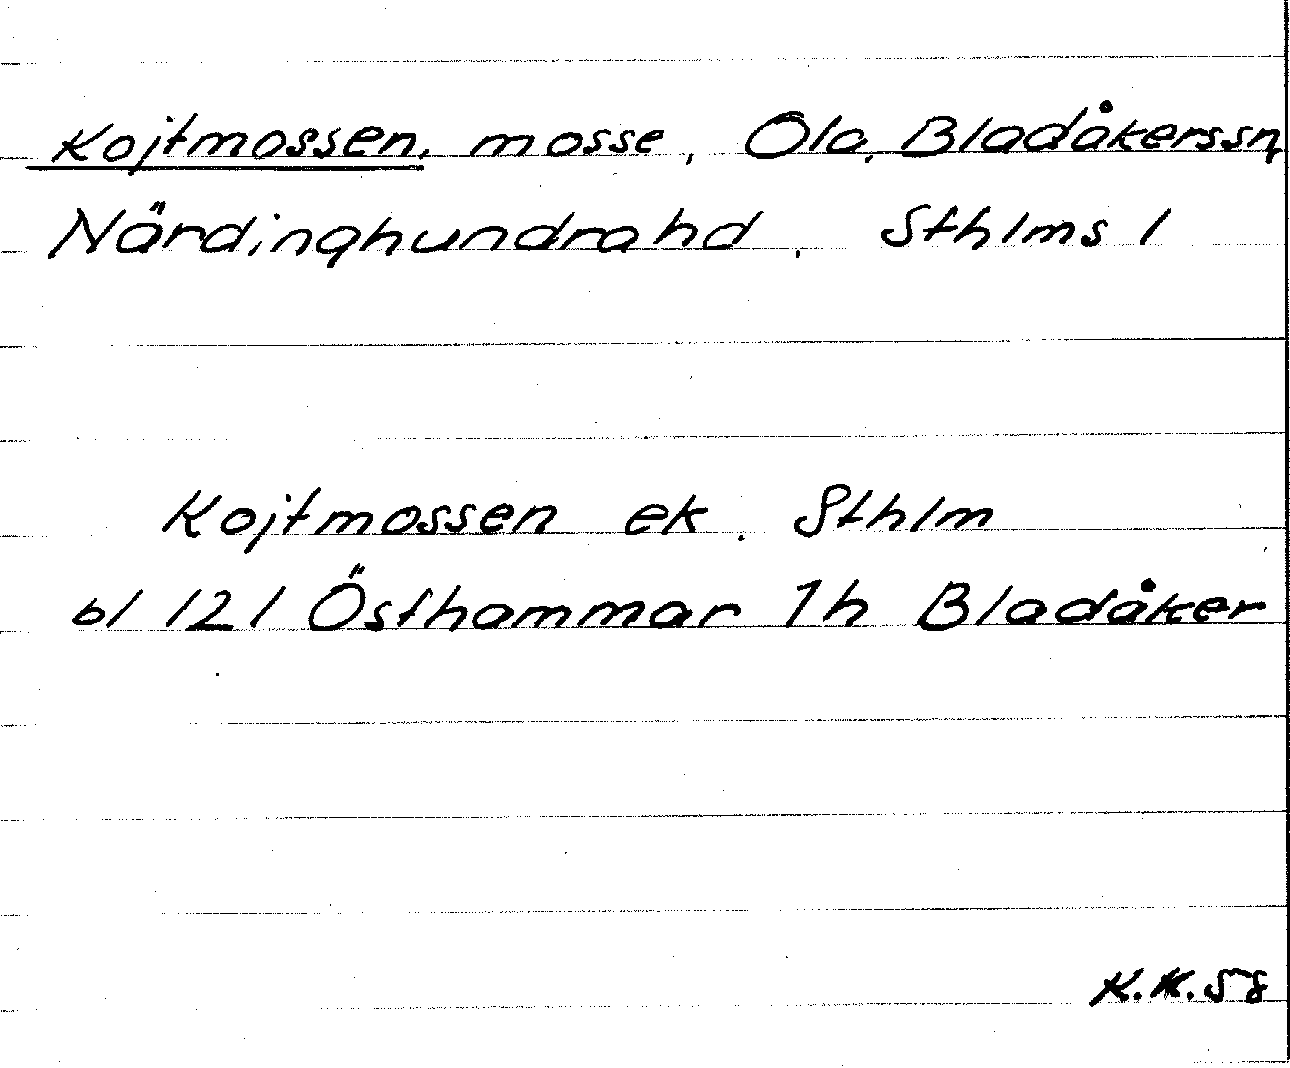 Kojtmossen, mosse, Ola, Bladåkerssn,
Närdinghundra hd, Sthlms l
Kojtmossen ek. Sthlm
bl 121 Östhammar 1h Bladåker
K.K.58